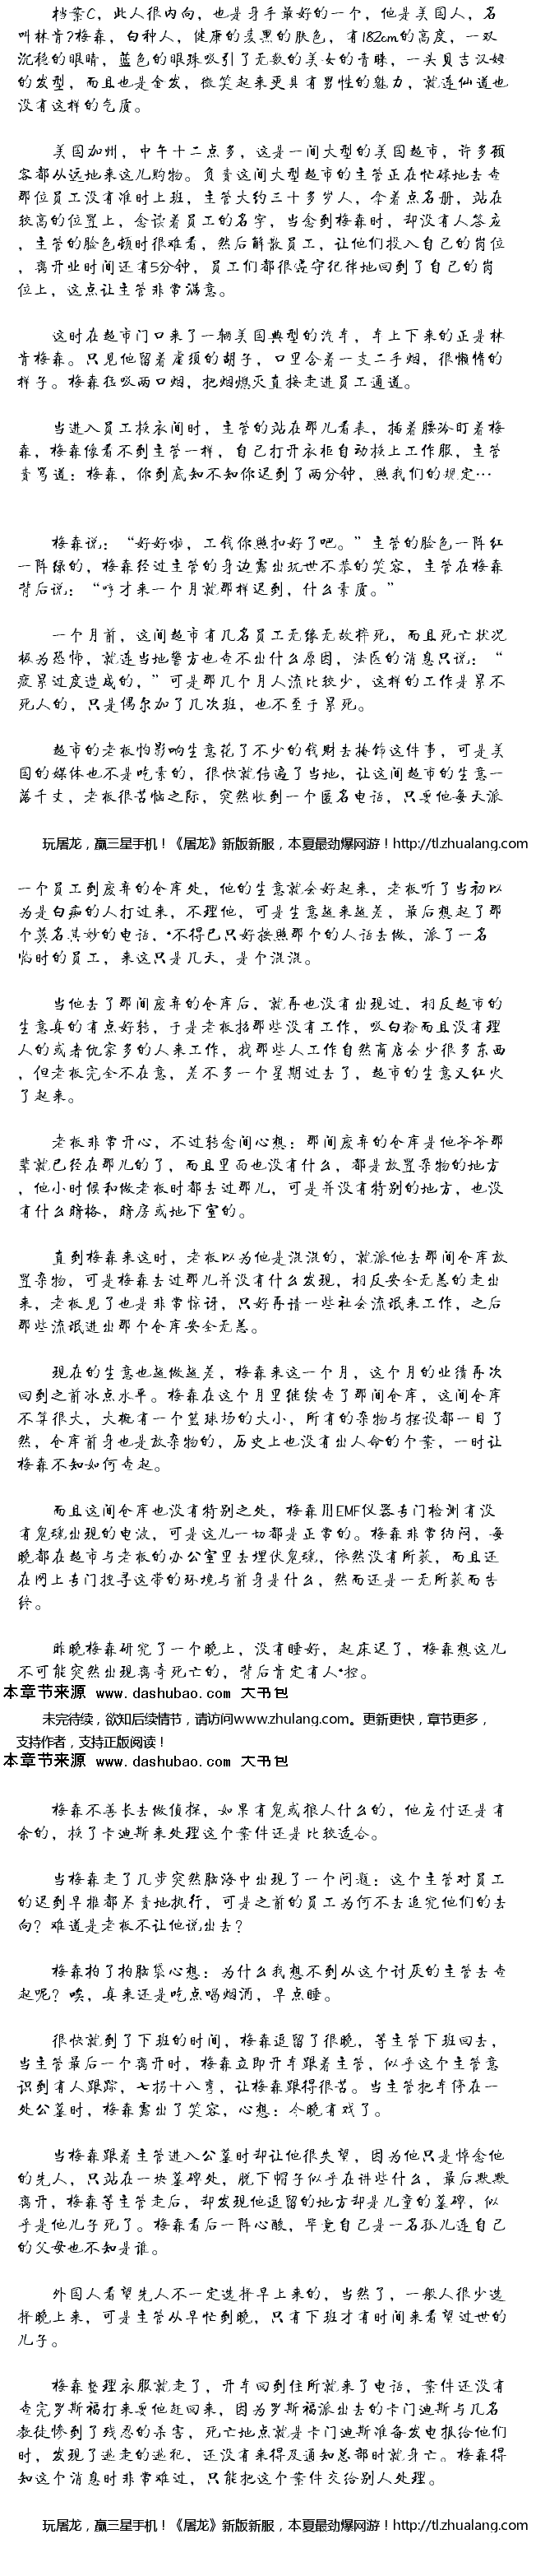 档案C，此人很内向，也是身手最好的一个，他是美国人，名
叫林肯?梅森，白种人，健康的黑黑的肤色，有182cm的高度，一双
沉稳的眼睛，蓝色的眼珠吸引了无数的美女的青睐，一头贝吉汉姆
的发型，而且也是金发，微笑起来更具有男性的魅力，就连仙道也
没有这样的气质。
美国加州，中午十二点多，这是一间大型的美国超市，许多顾
客都从远地来这儿购物。负责这间大型超市的主管正在忙碌地去查
那位员工没有准时上班，主管大约三十多岁人，拿着点名册，站在
较高的位置上，念读着员工的名字，当念到梅森时，却没有人答应
，主管的脸色顿时很难看，然后解散员工，让他们投入自己的岗位
，离开业时间还有5分钟，员工们都很遵守纪律地回到了自己的岗
位上，这点让主管非常满意。
这时在超市门口来了一辆美国典型的汽车，车上下来的正是林
肯梅森。只见他留着虚须的胡子，口里含着一支二手烟，很懒惰的
样子。梅森狂吸两口烟，把烟熄灭直接走进员工通道。
当进入员工换衣间时，主管的站在那儿看表，插着腰冷盯着梅
森，梅森像看不到主管一样，自己打开衣柜自动换上工作服，主管
责骂道：梅森，你到底知不知你迟到了两分钟，照我们的规定…
梅森说：“好好啦，工钱你照扣好了吧。”主管的脸色一阵红
一阵绿的，梅森经过主管的身边露出玩世不恭的笑容，主管在梅森
背后说：“哼才来一个月就那样迟到，什么素质。”
一个月前，这间超市有几名员工无缘无故猝死，而且死亡状况
极为恐怖，就连当地警方也查不出什么原因，法医的消息只说：“
疲累过度造成的，”可是那几个月人流比较少，这样的工作是累不
死人的，只是偶尔加了几次班，也不至于累死。
超市的老板怕影响生意花了不少的钱财去掩饰这件事，可是美
国的媒体也不是吃素的，很快就传遍了当地，让这间超市的生意一
落千丈，老板很苦恼之际，突然收到一个匿名电话，只要他每天派
玩屠龙，赢三星手机！《屠龙》新版新服，本夏最劲爆网游！http://tl.zhualang.com
一个员工到废弃的仓库处，他的生意就会好起来，老板听了当初以
为是白痴的人打过来，不理他，可是生意越来越差，最后想起了那
个莫名其妙的电话，*不得已只好按照那个的人话去做，派了一名
临时的员工，来这只是几天，是个混混。
当他去了那间废弃的仓库后，就再也没有出现过，相反超市的
生意真的有点好转，于是老板招那些没有工作，吸白粉而且没有理
人的或者仇家多的人来工作，找那些人工作自然商店会少很多东西
，但老板完全不在意，差不多一个星期过去了，超市的生意又红火
了起来。
老板非常开心，不过转念间心想：那间废弃的仓库是他爷爷那
辈就已经在那儿的了，而且里面也没有什么，都是放置杂物的地方
，他小时候和做老板时都去过那儿，可是并没有特别的地方，也没
有什么暗格，暗房或地下室的。
直到梅森来这时，老板以为他是混混的，就派他去那间仓库放
置杂物，可是梅森去过那儿并没有什么发现，相反安全无恙的走出
来，老板见了也是非常惊讶，只好再请一些社会流氓来工作，之后
那些流氓进出那个仓库安全无恙。
现在的生意也越做越差，梅森来这一个月，这个月的业绩再次
回到之前冰点水平。梅森在这个月里继续查了那间仓库，这间仓库
不算很大，大概有一个篮球场的大小，所有的杂物与摆设都一目了
然，仓库前身也是放杂物的，历史上也没有出人命的个案，一时让
梅森不知如何查起。
而且这间仓库也没有特别之处，梅森用EMF仪器专门检测有没
有鬼魂出现的电波，可是这儿一切都是正常的。梅森非常纳闷，每
晚都在超市与老板的办公室里去埋伏鬼魂，依然没有所获，而且还
在网上专门搜寻这带的环境与前身是什么，然而还是一无所获而告
终。
昨晚梅森研究了一个晚上，没有睡好，起床迟了，梅森想这儿
不可能突然出现离奇死亡的，背后肯定有人*控。
本章节来源 www.dashubao.com 大书包
未完待续，欲知后续情节，请访问www.zhulang.com。更新更快，章节更多，
支持作者，支持正版阅读！
本章节来源 www.dashubao.com 大书包
梅森不善长去做侦探，如果有鬼或狼人什么的，他应付还是有
余的，换了卡迪斯来处理这个案件还是比较适合。
当梅森走了几步突然脑海中出现了一个问题：这个主管对员工
的迟到早推都尽责地执行，可是之前的员工为何不去追究他们的去
向？难道是老板不让他说出去？
梅森拍了拍脑袋心想：为什么我想不到从这个讨厌的主管去查
起呢？唉，真来还是吃点喝烟酒，早点睡。
很快就到了下班的时间，梅森逗留了很晚，等主管下班回去，
当主管最后一个离开时，梅森立即开车跟着主管，似乎这个主管意
识到有人跟踪，七拐十八弯，让梅森跟得很苦。当主管把车停在一
处公墓时，梅森露出了笑容，心想：今晚有戏了。
当梅森跟着主管进入公墓时却让他很失望，因为他只是悼念他
的先人，只站在一块墓碑处，脱下帽子似乎在讲些什么，最后默默
离开，梅森等主管走后，却发现他逗留的地方却是儿童的墓碑，似
乎是他儿子死了。梅森看后一阵心酸，毕竟自己是一名孤儿连自己
的父母也不知是谁。
外国人看望先人不一定选择早上来的，当然了，一般人很少选
择晚上来，可是主管从早忙到晚，只有下班才有时间来看望过世的
儿子。
梅森整理衣服就走了，开车回到住所就来了电话，案件还没有
查完罗斯福打来要他赶回来，因为罗斯福派出去的卡门迪斯与几名
教徒惨到了残忍的杀害，死亡地点就是卡门迪斯准备发电报给他们
时，发现了逃走的逃犯，还没有来得及通知总部时就身亡。梅森得
知这个消息时非常难过，只能把这个案件交给别人处理。
玩屠龙，赢三星手机！《屠龙》新版新服，本夏最劲爆网游！http://tl.zhualang.com